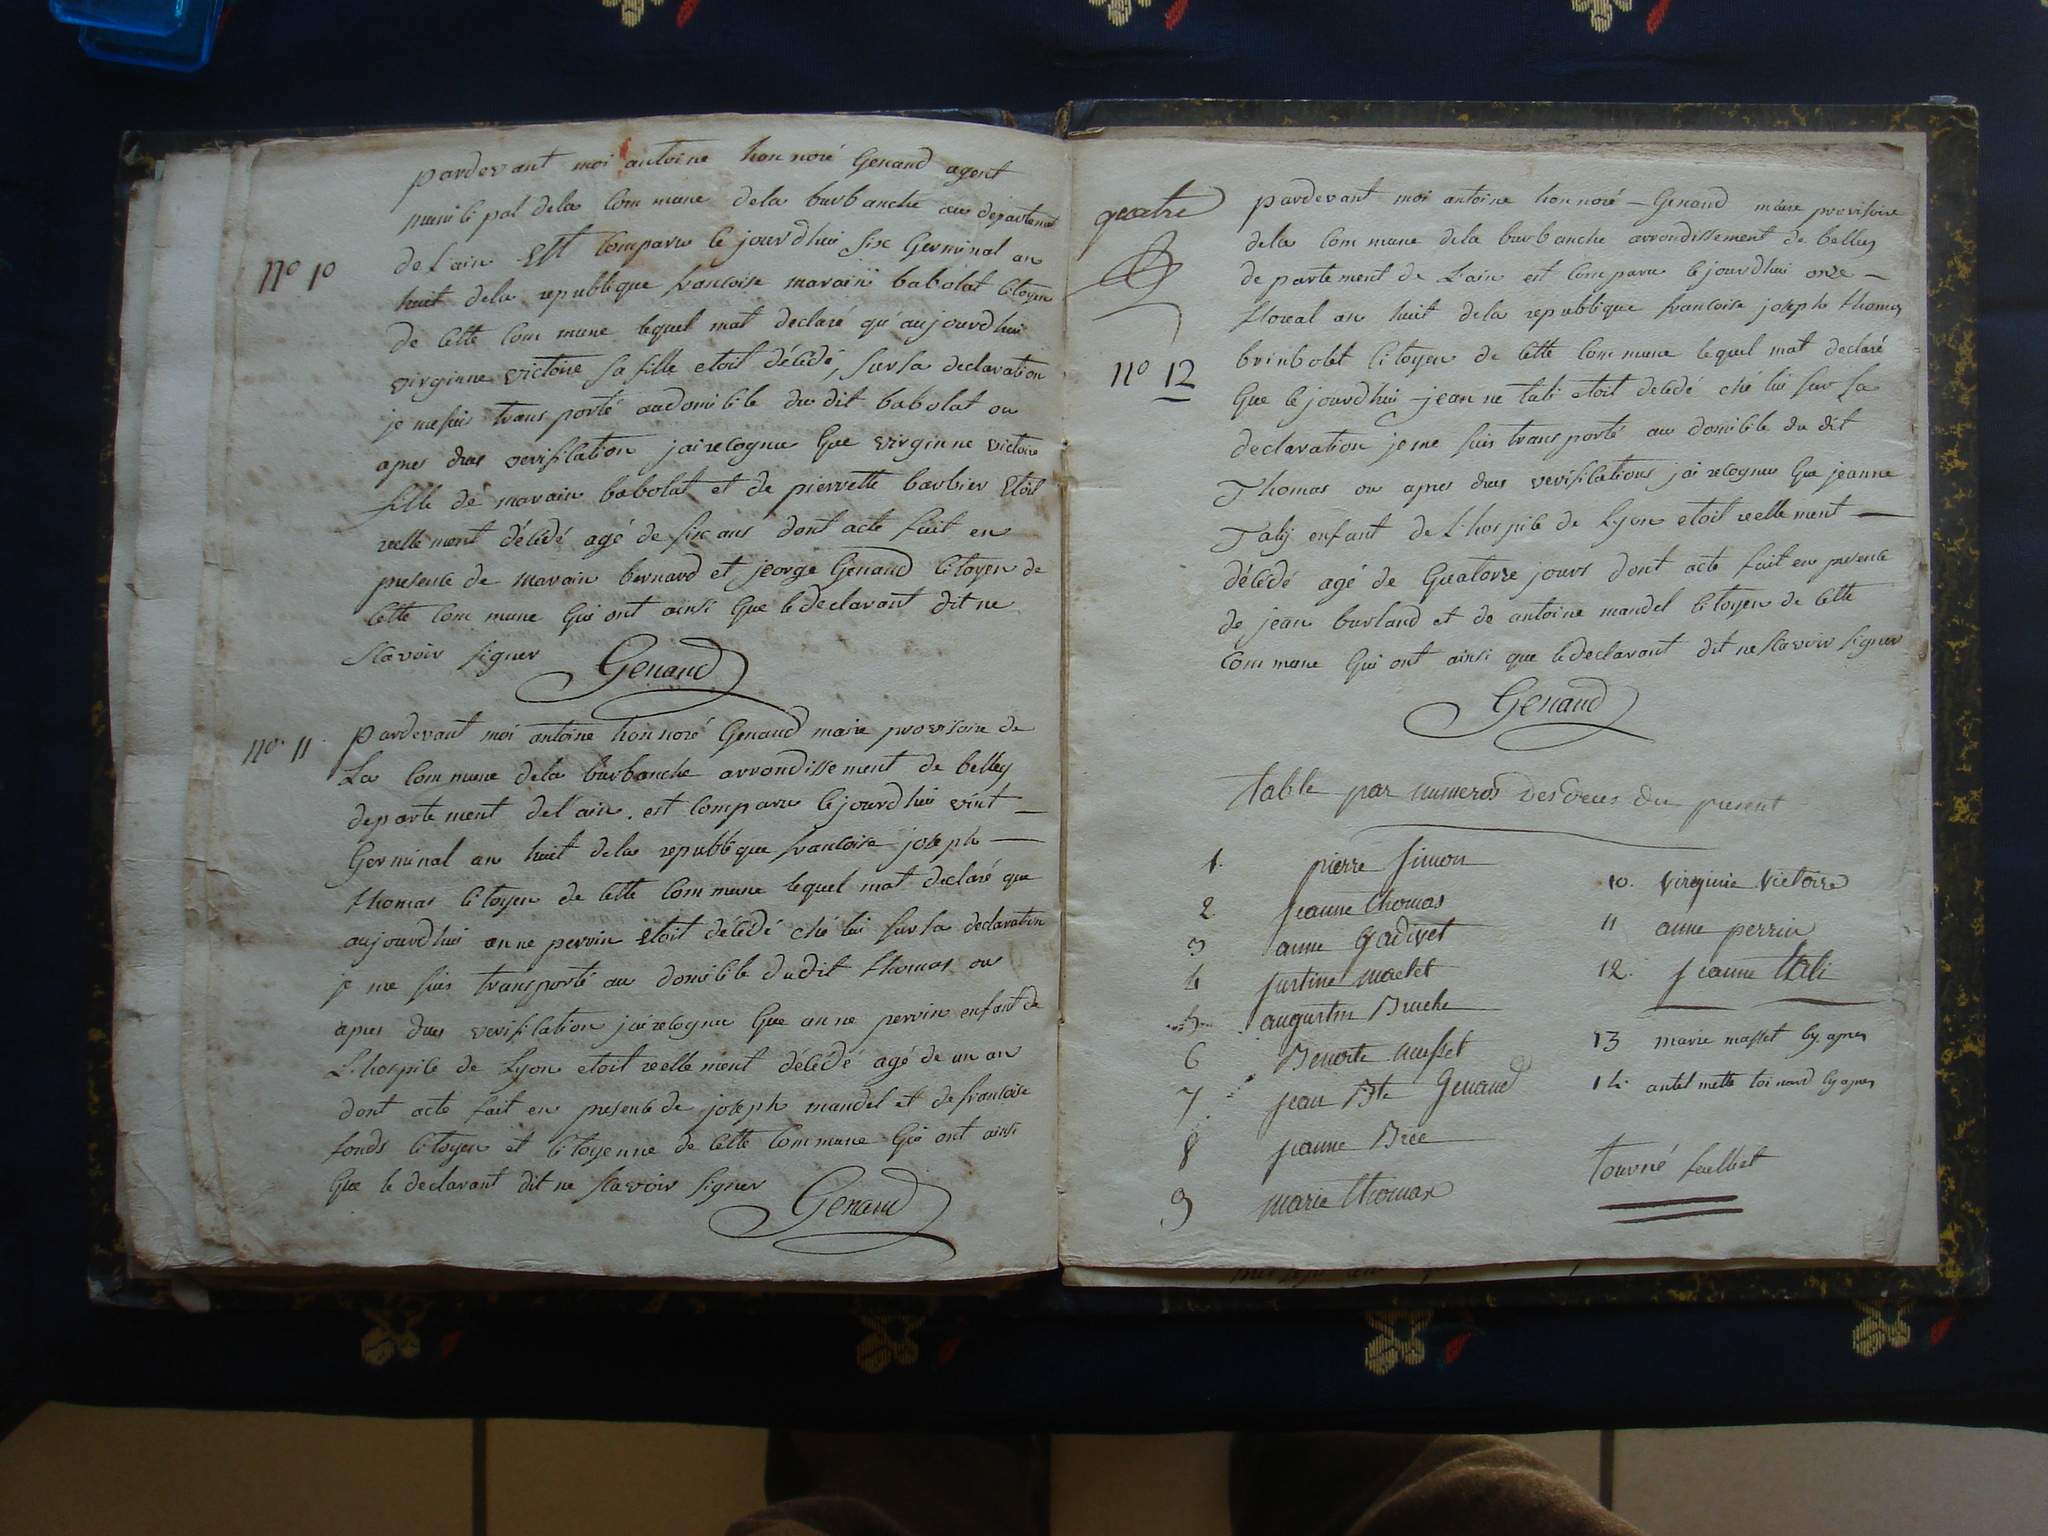 pardevant moi antoine honnoré Genand agent
municipal dela Commune dela burbanche au departement
nº 10
de L'ain Est Comparu le jourdhui six Germinal an
huit dela republique francoise marain babolat Citoyen
de Cette Commune lequel mat declaré qu'aujourdhui
virginne victoire sa fille etoit décédé, sur sa declaration
je me suis transporté audomicile du dit babolat ou
apres dues verification jai recognu que virginne victoire
fille de marain babolat et de pierrette barbier Etoit
reellement décédé agé de six ans dont acte fait en
presence de marain bernard et jeorge Genand Citoyen de
Cette Commune Qui ont ainsi que le declarant dit ne
scavoir signer Genand
nº 11
pardevant moi antoine honnoré Genand maire provisoire de
La Commune dela burbanche arrondissement de belley
departement del'ain. est comparu lejourdhui vint
Germinal an huit dela republique francoise joseph
thomas Citoyen de Cette Commune lequel mat declaré que
aujourdhui anne perrin etoit décédé ché lui sur sa declaration
je me suis transporté au domicile dudit thomas ou
apres dues verification jai recognu Que anne perrin enfant de
L'hospice de Lyon etoit reellement décédé agé de un an
dont acte fait en presence de joseph mandel et de francoise
fonds Citoyen et Citoyenne de Cette Commune Qui ont ainsi
Que le declarant dit ne scavoir signer Genand
quatre
pardevant moi antoine honnoré Genand maire provisoire
dela Commune dela burbanche arrondissement de belley
departement de L'ain est comparu lejourdhui onze
floreal an huit dela republique francoise joseph thomas
nº 12
brinbolet Citoyen de Cette Commune lequel mat declaré
Que lejourdhui jeanne tali etoit décédé ché lui sur sa
declaration je me suis transporté au domicile du dit
Thomas ou apres dues verifications jai recognu Que jeanne
Taly enfant de L'hospice de Lyon etoit reellement
décédé agé de Quatorze jours dont acte fait en presence
de jean burland et de antoine mandel Citoyen de Cette
Commune Qui ont ainsi que le declarant dit ne scavoir signer
Genand
table par numeros des du present
1. pierre Simon
2 jeanne thomas
3 anne Gadivet
4 justine maclet
5 augustin Bruche
6 Benoite musset
7 jean Bte Genand
8 jeanne Bree
9 marie thomas
10. virginie victoire
11 anne perrin
12. jeanne tali
13 marie masset cy apres
14. antelmette toinard cy apres
tourné feulliet